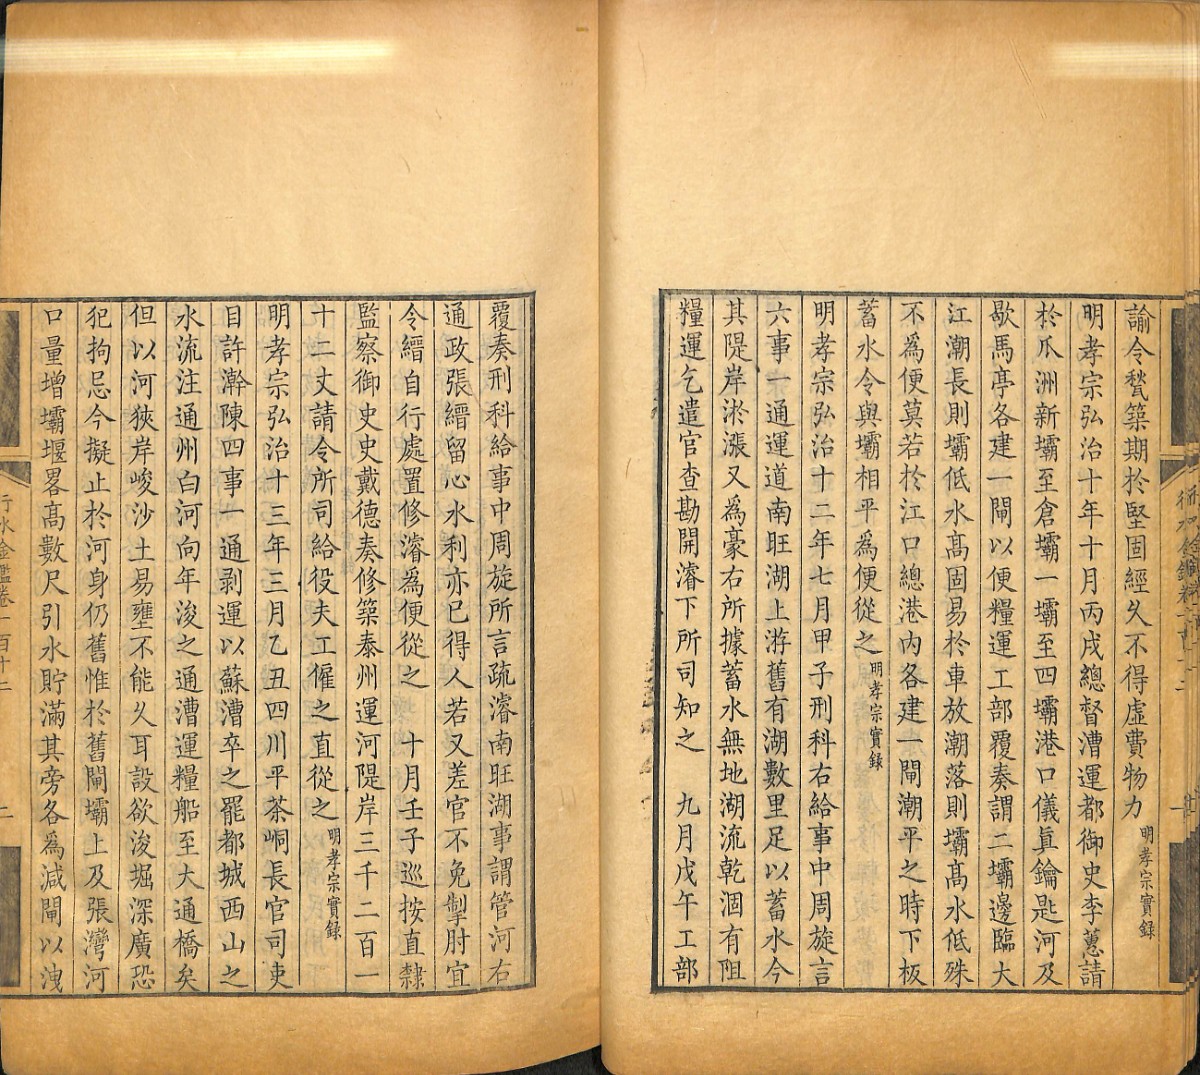 諭令甃築期於堅固經久不得虛費物力明孝宗實錄
明孝宗弘治十年十月丙戌總督漕運都御史李蕙請
於瓜洲新壩至倉壩一壩至四壩港口儀眞鑰匙河及
歇馬亭各建一閘以便糧運工部覆奏謂二壩邊臨大
江潮長則壩低水高固易於車放潮落則壩高水低殊
不為便莫若於江口總港內各建一閘潮平之時下板
蓄水令與壩相平爲便從之明孝宗實錄
明孝宗弘治十二年七月甲子刑科右給事中周旋言
六事一通運道南旺湖上游舊有湖數里足以蓄水今
其隄岸淤漲又爲豪右所據蓄水無地湖流乾涸有阻
糧運乞遣官查勘開濬下所司知之　九月戊午工部
覆奏刑科給事中周旋所言疏濬南旺湖事謂管河右
通政張縉留心水利亦已得人若又差官不免掣肘宜
令縉自行處置修濬爲便從之　十月壬子巡按直隸
監察御史史戴德奏修築泰州運河隄岸三千二百一
十二丈請令所司給役夫工僱之直從之明孝宗實錄
明孝宗弘治十三年三月乙丑四川平茶峒長官司吏
目許瀚陳四事一通剥運以蘇漕卒之罷都城西山之
水流注通州白河向年浚之通漕運糧船至大通橋矣
但以河狹岸峻沙土易壅不能久耳設欲浚掘深廣恐
犯拘忌今擬止於河身仍舊惟於舊閘壩上及張灣河
口量增壩堰畧高數尺引水貯滿其旁各爲減閘以洩
行水金鑑卷一百十二　二